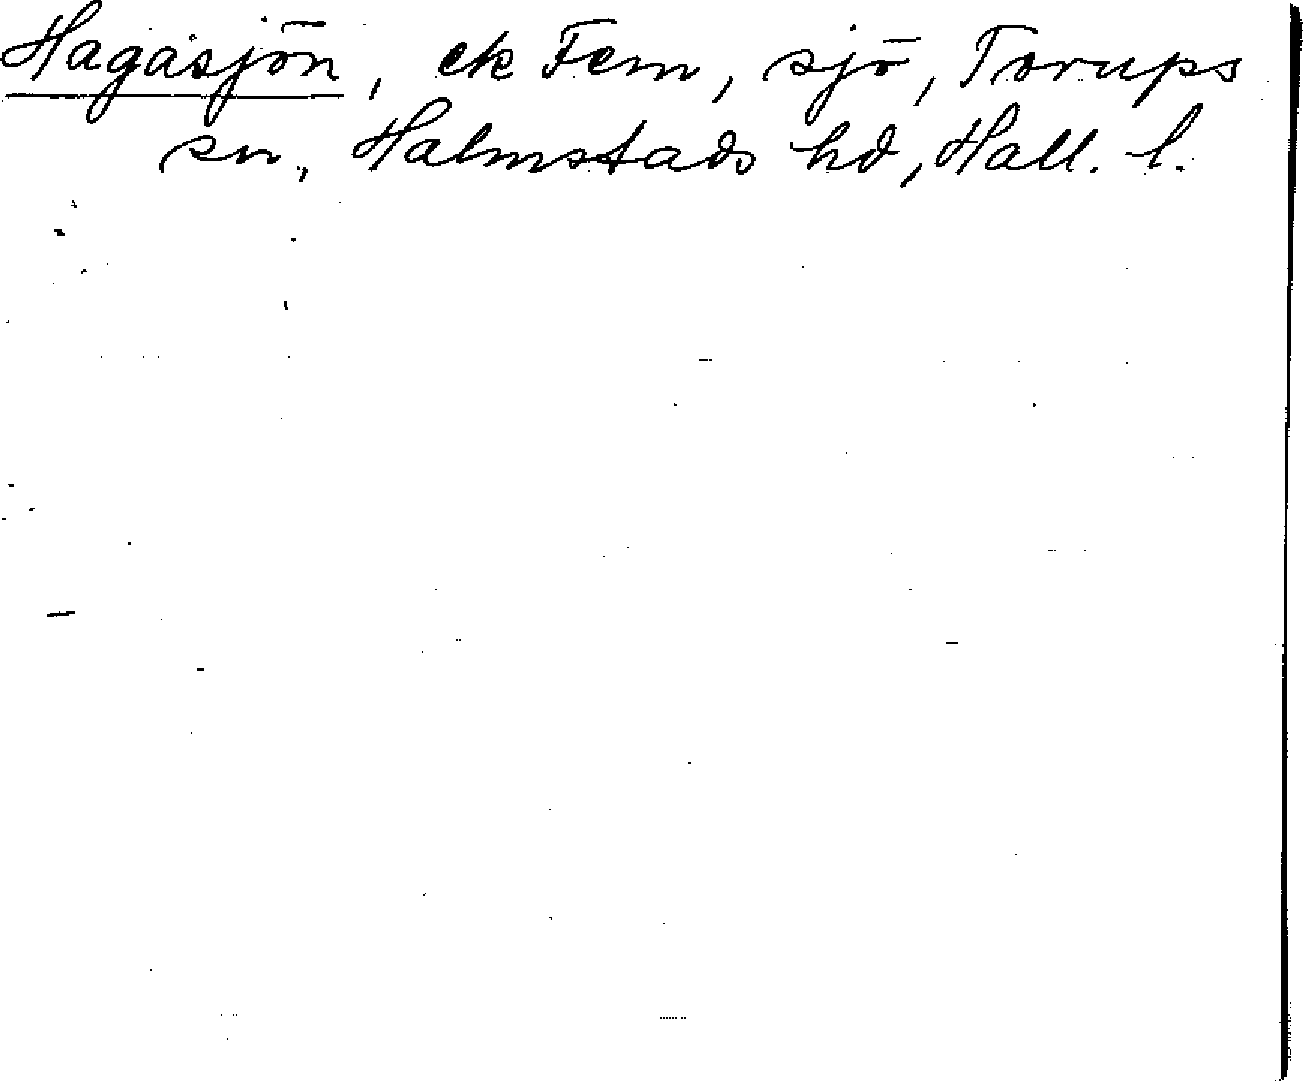 Hagasjön, ek Fem, sjö, Torups
sn., Halmstads hd, Hall. l.